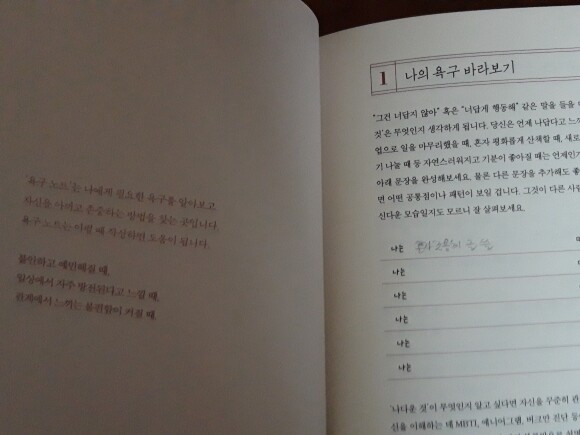 '욕구 노트'는 나에게 필요한 욕구를 알아보고
자신을 아끼고 존중하는 방법을 찾는 곳입니다.
욕구 노트는 이럴 때 작성하면 도움이 됩니다.
불안하고 예민해질 때,
일상에서 자주 방전된다고 느낄 때,
관계에서 느끼는 불편함이 커질 때.
1 나의 욕구 바라보기
"그건 너답지 않아" 혹은 "너답게 행동해" 같은 말을 들을
것'은 무엇인지 생각하게 됩니다. 당신은 언제 나답다고
업으로 일을 마무리했을 때, 혼자 평화롭게 산책할 때, 새로
기 나눌 때 등 자연스러워지고 기분이 좋아질 때는 언제인가
아래 문장을 완성해보세요. 물론 다른 문장을 추가해도
면 어떤 공통점이나 패턴이 보일 겁니다. 그것이 다른
신다운 모습일지도 모르니 잘 살펴보세요.
나는 혼자 조용히
나는
나는
나는
나는
나는
'나다운 것'이 무엇인지 알고 싶다면 자신을 꾸준히 관
신을 이해하는 데 MBTI, 에니어그램, 버크만 진단